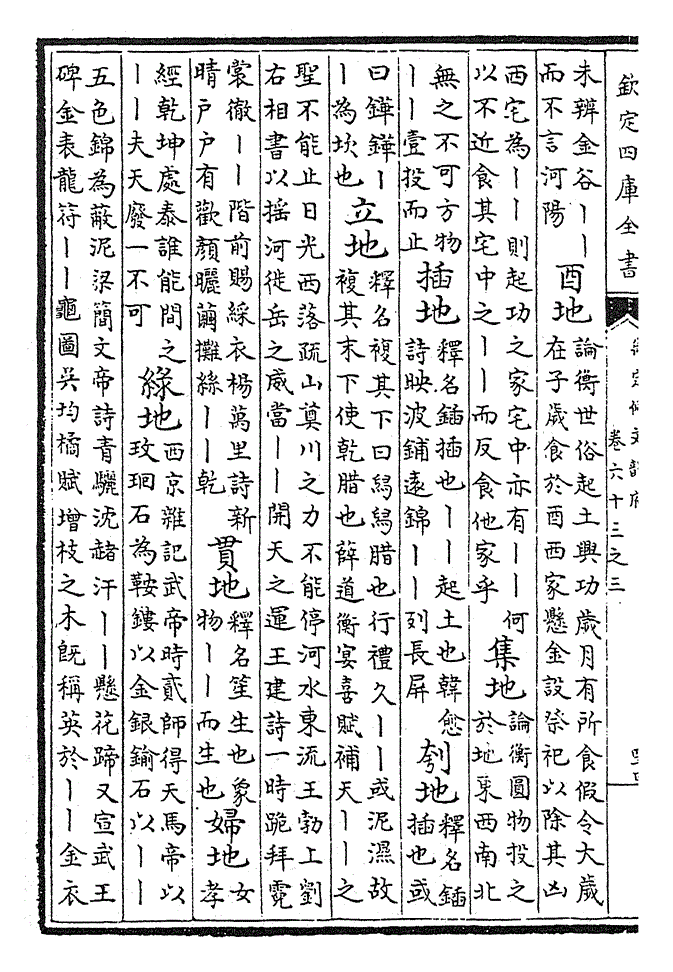 欽定四庫全書
卷六十三之三
未辨金谷丨丨
而不言河陽
酉地
論衡世俗起土興功歲月有所食假令太歲
在子歲食於酉西家懸金設祭祀以除其凶
西宅為丨丨則起功之家宅中亦有丨丨何
以不近食其宅中之丨丨而反食他家乎
集地
論衡圓物投之
於地東西南北
無之不可方物
丨丨壹投而止
插地
釋名鍤插也丨丨起土也韓愈
詩映波鋪遠錦丨丨列長屏
刳地
釋名鍤
插也或
曰鏵鏵丨
丨為坎也
立地
釋名複其下曰舄舄腊也行禮久丨丨或泥濕故
複其末下使乾腊也薛道衡宴喜賦補天丨丨之
聖不能止日光西落疏山奠川之力不能停河水東流王勃上劉
右相書以搖河徙岳之威當丨丨開天之運王建詩一時跪拜霓
裳徹丨丨階前賜綵衣楊萬里詩新
晴戶戶有歡顏曬繭攤絲丨丨乾
貫地
釋名笙生也象
物丨丨而生也
婦地
女
孝
經乾坤處泰誰能問之
丨丨夫天廢一不可
綠地
西京雜記武帝時貳師得天馬帝以
玫瑰石為鞍鏤以金銀鍮石以丨丨
五色錦為蔽泥梁簡文帝詩青驪沇赭汗丨丨懸花蹄又宣武王
碑金表龍符丨丨龜圖吳均橘賦增枝之木旣稱英於丨丨金衣